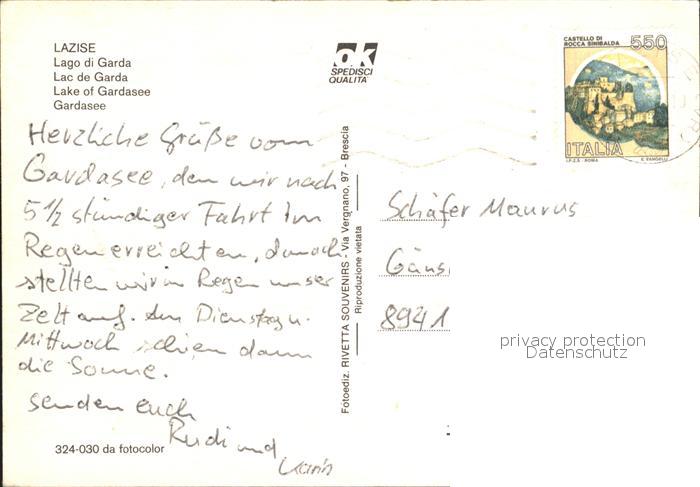 LAZISE
Lago di Garda
Lac de Garda
Lake of Gardasee
Gardasee
ok
SPEDISCI
QUALITA'
CASTELLO DI
ROCCA SINIBALDA
550
ITALIA
I.P.Z.S. - ROMA E. VANGELLI
Herzliche Grüße vom
Gardasee, den wir nach
5 1/2 stündiger Fahrt im
Regen erreichten, danach
stellten wir im Regen unser
Zelt auf. Am Dienstag u.
Mittwoch schien dann
die Sonne.
senden euch
Rudi und
Karin
324-030 da fotocolor
Fotoediz. RIVETTA SOUVENIRS - Via Vergnano, 97 - Brescia
Riproduzione vietata
Schäfer Maurus
Gäns
8941
privacy protection
Datenschutz